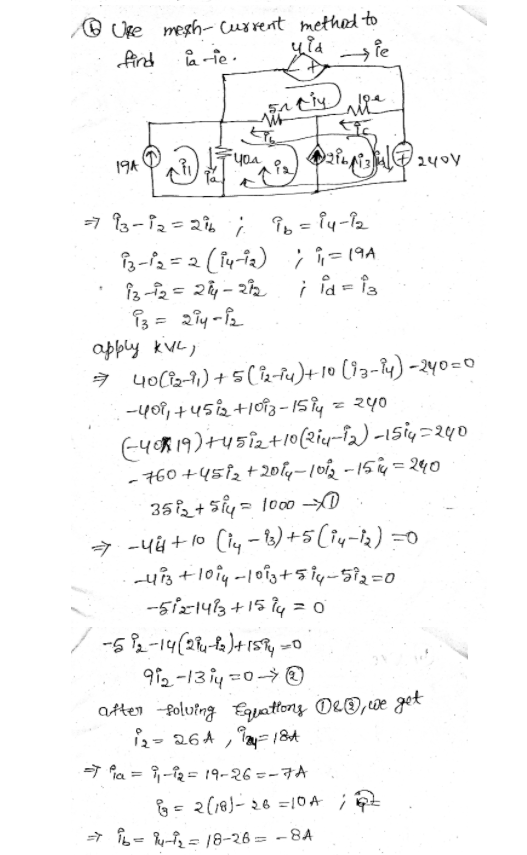 ⓑ Use mesh-current method to
find ia-ie.
4id
→ie
5Ω
i4
10Ω
ib
ic
19A
i1
ia
40Ω
i2
2ib
i3
id
240V
⇒ i3-i2 = 2ib ; ib = i4-i2
i3-i2 = 2(i4-i2) ; i1 = 19A
i3-i2 = 2i4-2i2 ; id = i3
i3 = 2i4-i2
apply KVL,
⇒ 40(i2-i1)+5(i2-i4)+10(i3-i4)-240=0
-40i1+45i2+10i3-15i4 = 240
(-40×19)+45i2+10(2i4-i2)-15i4=240
-760+45i2+20i4-10i2-15i4=240
35i2+5i4 = 1000 →①
⇒ -4id+10(i4-i3)+5(i4-i2)=0
-4i3+10i4-10i3+5i4-5i2=0
-5i2-14i3+15i4=0
-5i2-14(2i4-i2)+15i4=0
9i2-13i4=0→②
after solving Equations ①&②, we get
i2=26A, i4=18A
⇒ ia = i1-i2 = 19-26=-7A
i3 = 2(18)-26=10A ;
⇒ ib = i4-i2 = 18-26=-8A